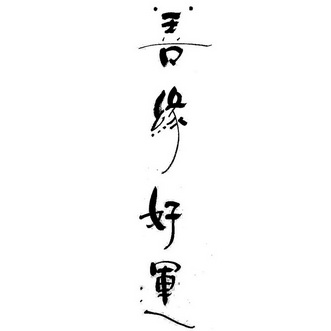 善緣好運